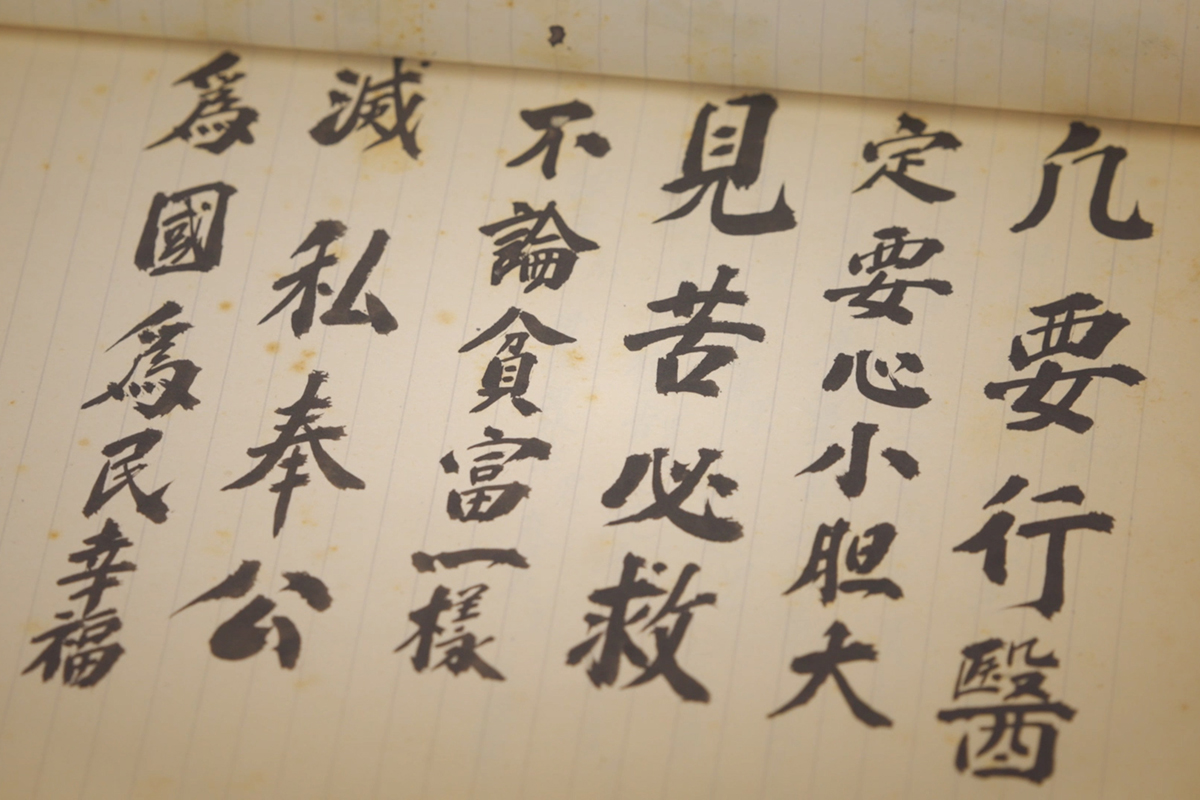 凢要行醫
定要心小胆大
見苦必救
不論貧富一樣
滅私奉公
為國為民幸福